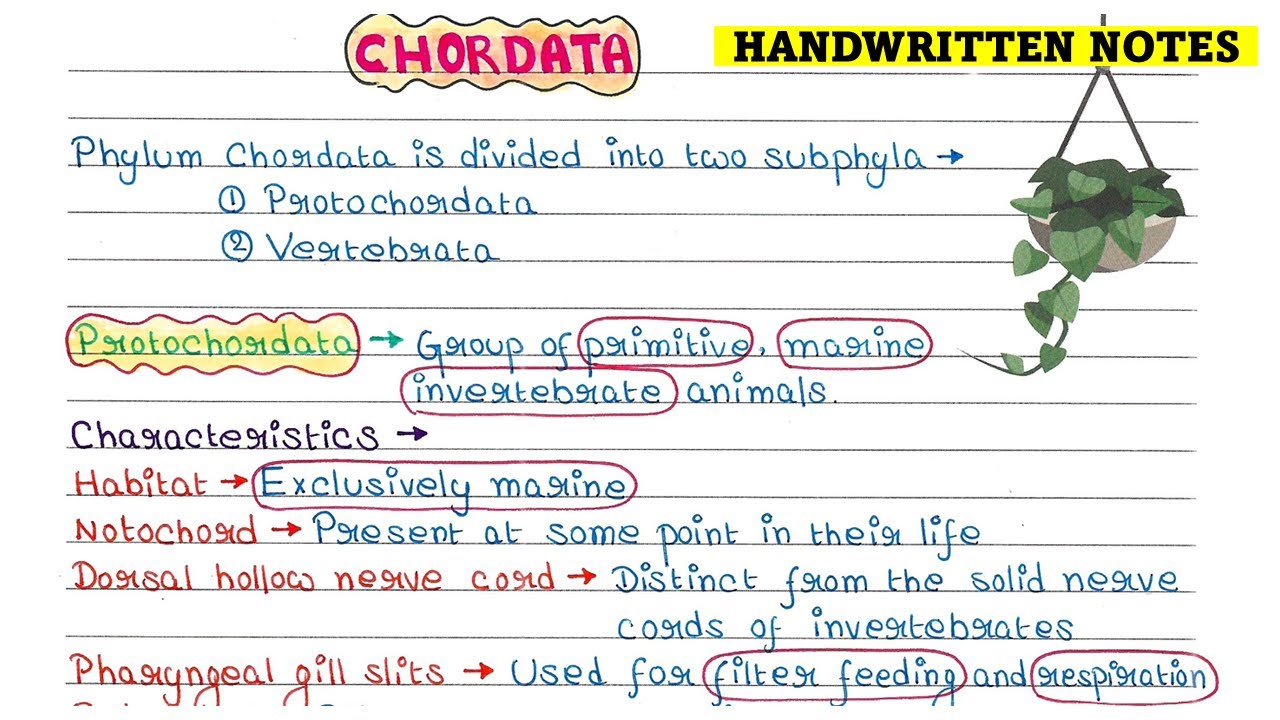 CHORDATA
HANDWRITTEN NOTES
Phylum Chordata is divided into two subphyla →
① Protochordata
② Vertebrata
Protochordata → Group of primitive, marine
invertebrate animals.
Characteristics →
Habitat → Exclusively marine
Notochord → Present at some point in their life
Dorsal hollow nerve cord → Distinct from the solid nerve
cords of invertebrates
Pharyngeal gill slits → Used for filter feeding and respiration